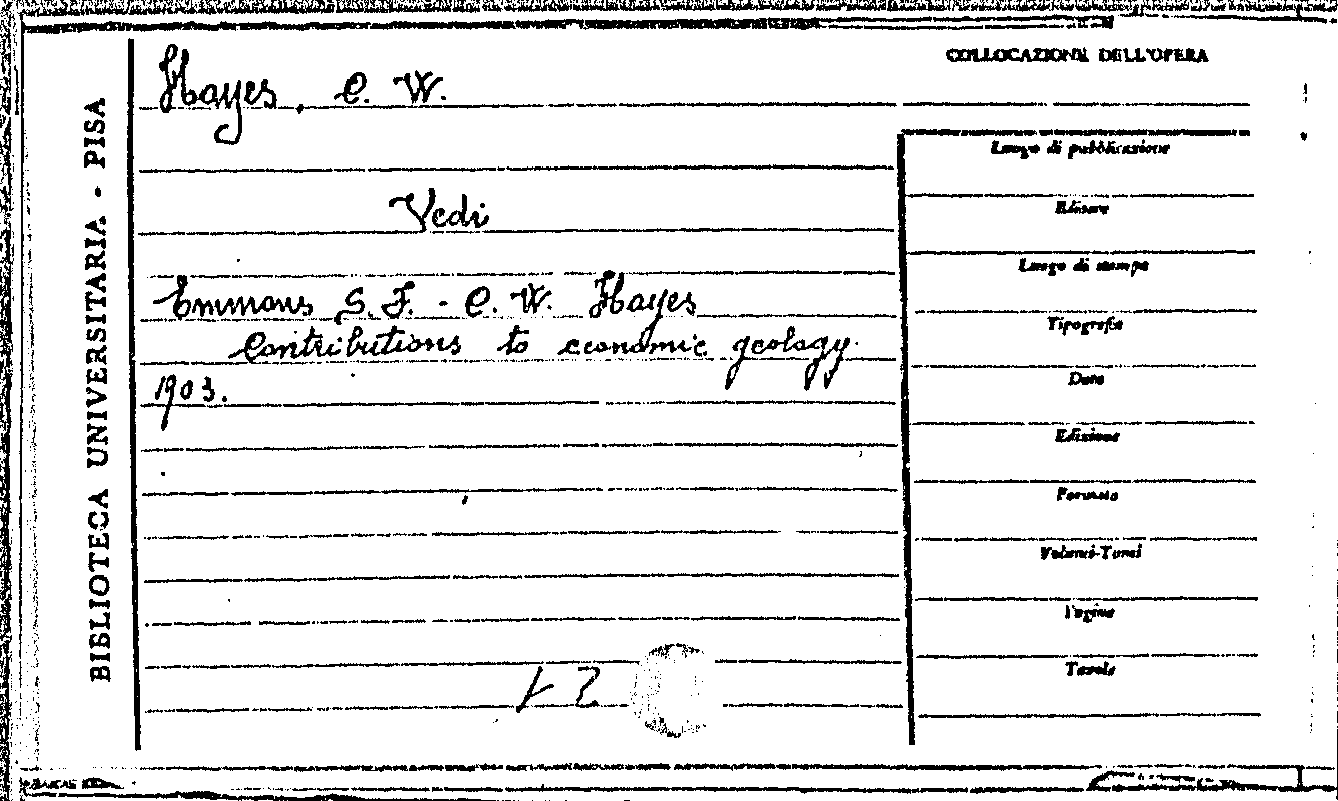 COLLOCAZIONE DELL'OPERA
Hayes, C. W.
BIBLIOTECA UNIVERSITARIA - PISA
Vedi
Emmons S. F. - C. W. Hayes
Contributions to economic geology.
1903.
Luogo di pubblicazione
Editore
Luogo di stampa
Tipografia
Data
Edizione
Formato
Volumi-Tomi
Pagine
Tavole